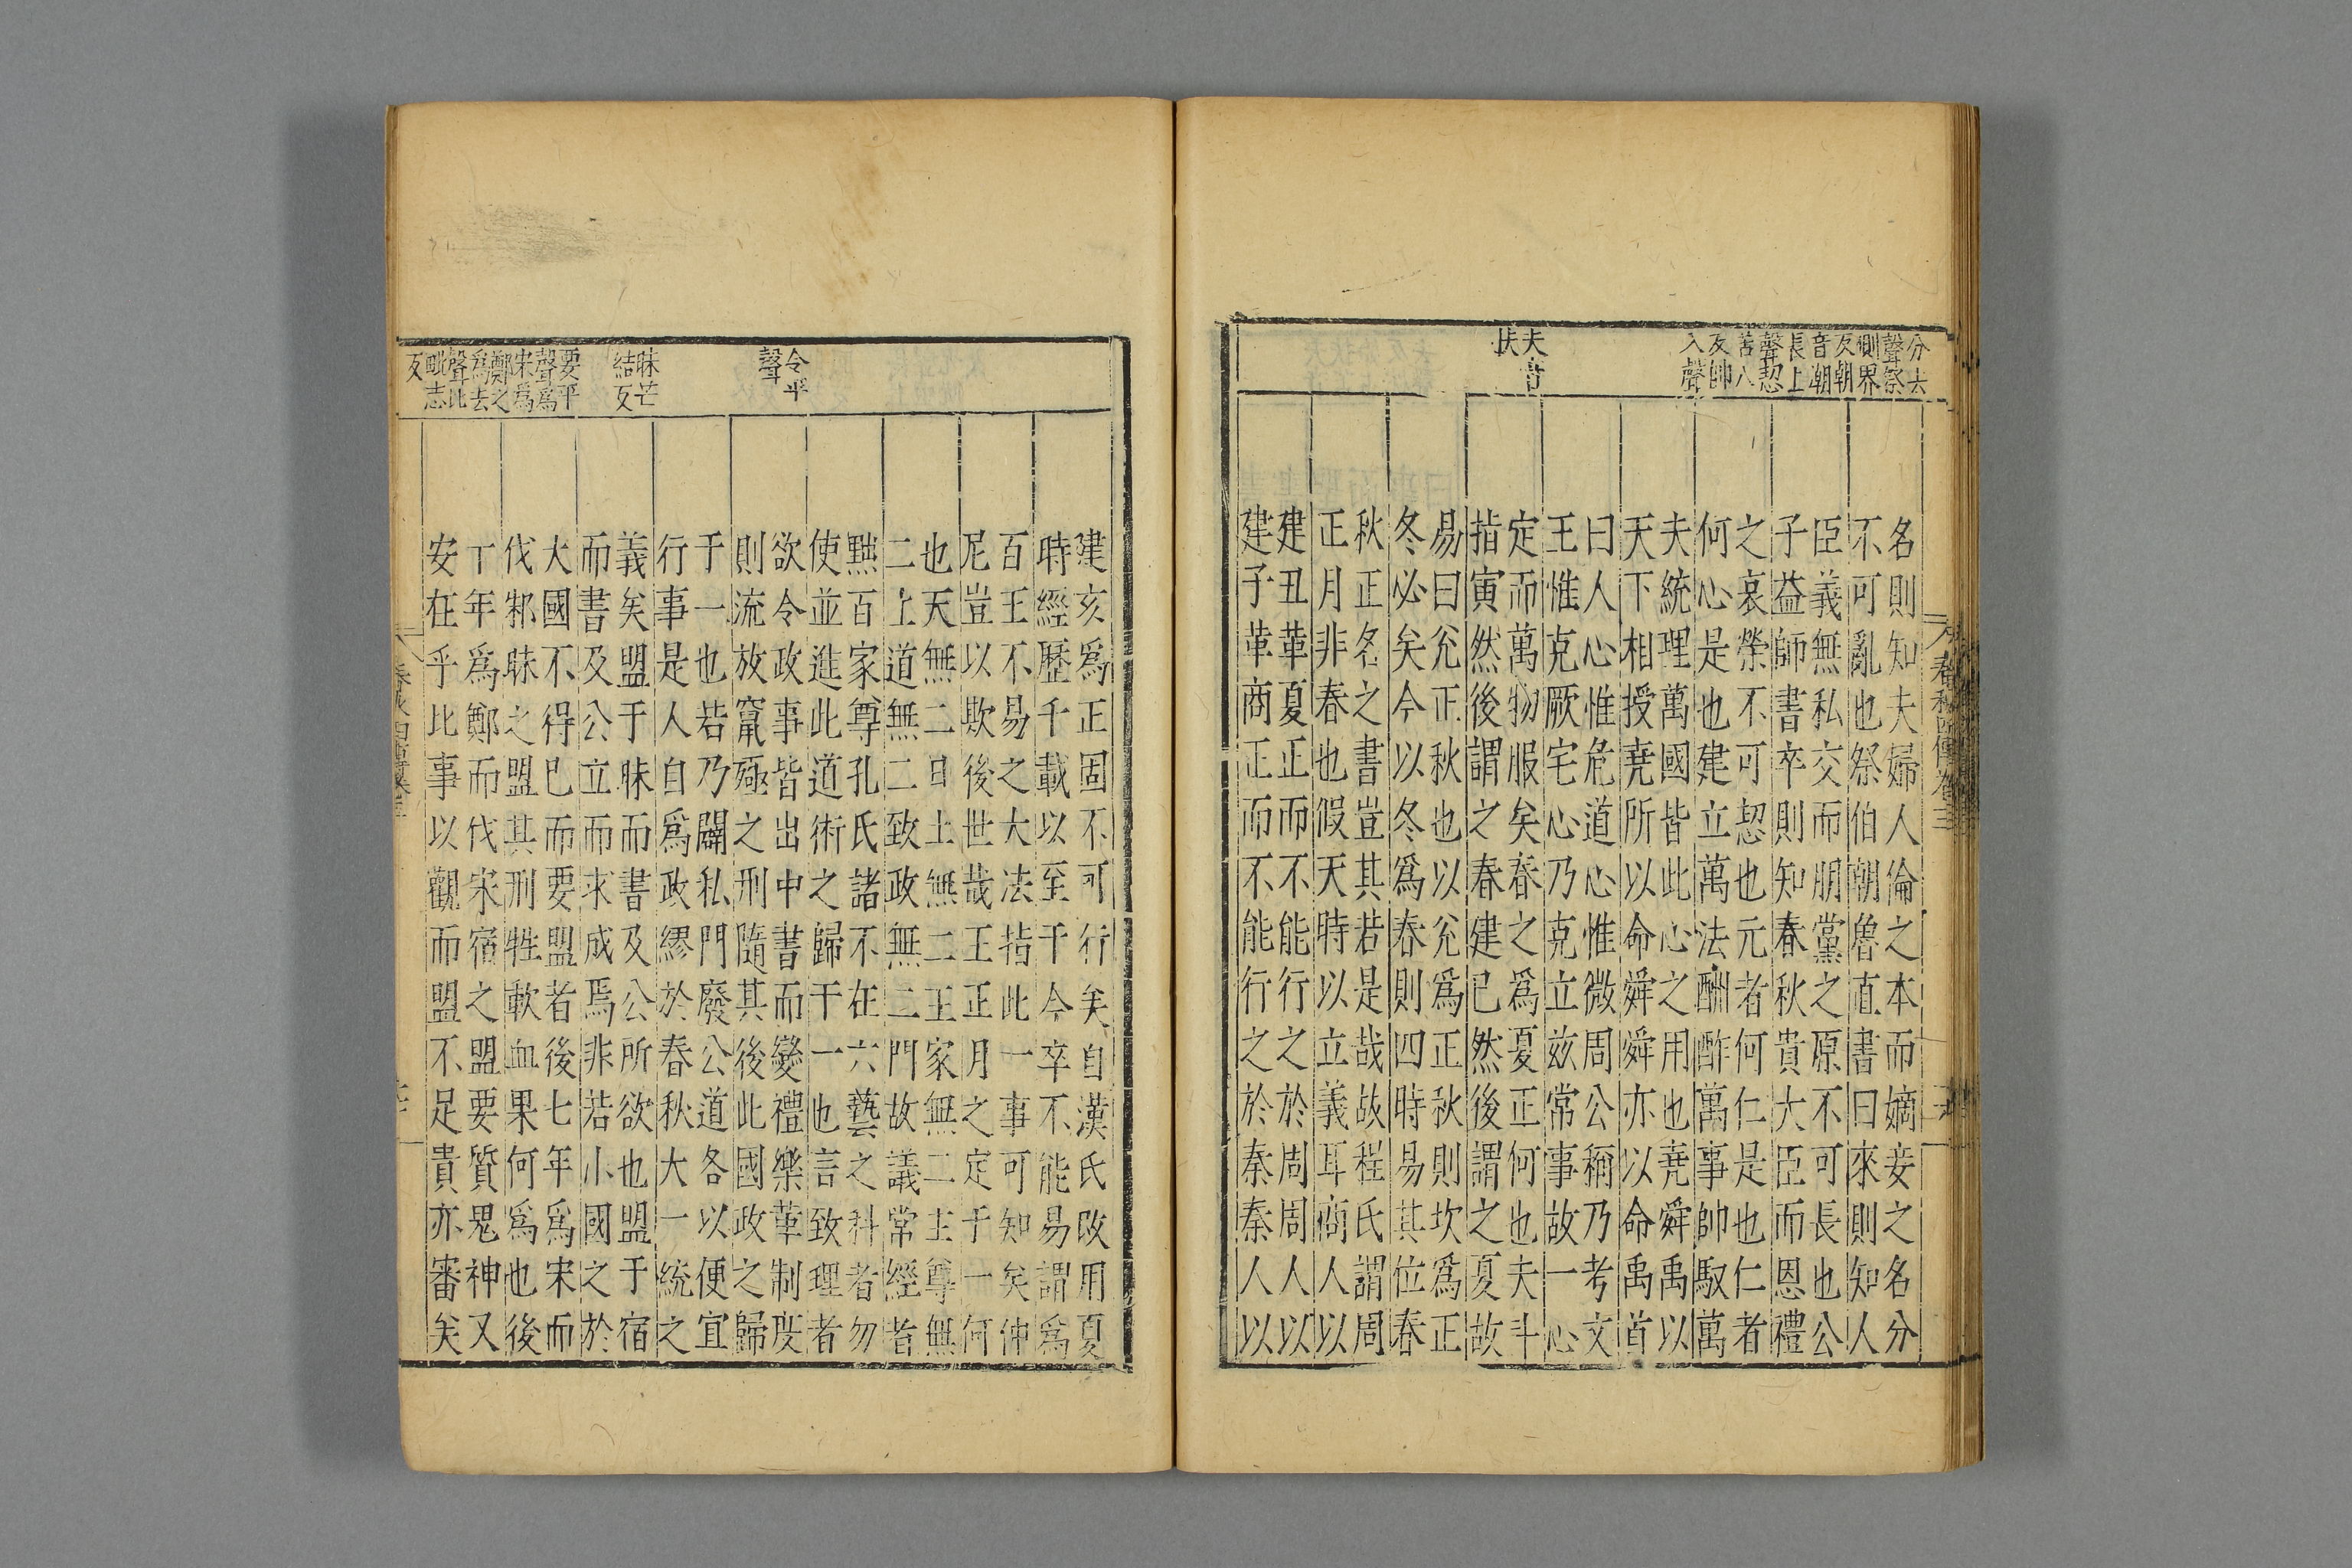 分去
聲祭
側界
反朝
音潮
長上
聲恝
苦八
反帥
入聲
夫音
扶
名則知夫婦人倫之本而嫡妾之名分
不可亂也祭伯朝魯直書曰來則知人
臣義無私交而朋黨之原不可長也公
子益師書卒則知春秋貴大臣而恩禮
之哀榮不可恝也元者何仁是也仁者
何心是也建立萬法酬酢萬事帥馭萬
夫統理萬國皆此心之用也堯舜禹以
天下相授堯所以命舜舜亦以命禹首
曰人心惟危道心惟微周公稱乃考文
王惟克厥宅心乃克立茲常事故一心
定而萬物服矣春之爲夏正何也夫斗
指寅然後謂之春建巳然後謂之夏故
易曰兊正秋也以兊爲正秋則坎爲正
冬必矣今以冬爲春則四時易其位春
秋正名之書豈其若是哉故程氏謂周
正月非春也假天時以立義耳商人以
建丑革夏正而不能行之於周周人以
建子革商正而不能行之於秦秦人以
春秋四傳卷三
建亥爲正固不可行矣自漢氏改用夏
時經歷千載以至于今卒不能易謂爲
百王不易之大法指此一事可知矣仲
尼豈以欺後世哉王正月之定于一何
也天無二日土無二王家無二主尊無
二上道無二致政無二門故議常經者
黜百家尊孔氏諸不在六藝之科者勿
使並進此道術之歸于一也言致理者
欲令政事皆出中書而變禮樂革制度
則流放竄殛之刑隨其後此國政之歸
于一也若乃闢私門廢公道各以便宜
行事是人自爲政繆於春秋大一統之
義矣盟于眛而書及公所欲也盟于宿
而書及公立而求成焉非若小國之於
大國不得已而要盟者後七年爲宋而
伐邾眛之盟其刑牲歃血果何爲也後
丁年爲鄭而伐宋宿之盟要質鬼神又
安在乎比事以觀而盟不足貴亦審矣
令平
聲
眛芒
結反
要平
聲爲
宋爲
鄭之
爲去
聲比
毗志
反